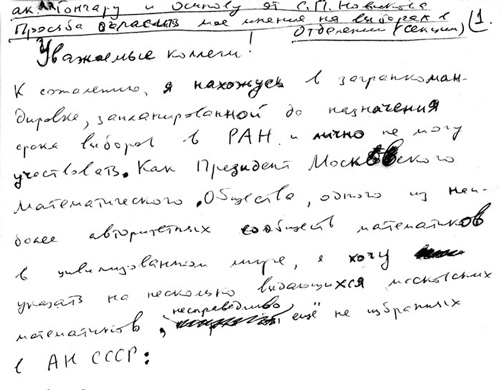 ак. Гончару и Осипову от С.П. Новикова
Просьба огласить мое мнение на выборах в
Отделении (секции) (1.
Уважаемые коллеги!
К сожалению, я нахожусь в загранкоман-
дировке, запланированной до назначения
срока выборов в РАН и лично не могу
участвовать. Как Президент Московского
Математического Общества, одного из наи-
более авторитетных сообществ математиков
в цивилизованном мире, я хочу
указать на несколько выдающихся московских
несправедливо
математиков, ещё не избранных
в АН СССР: